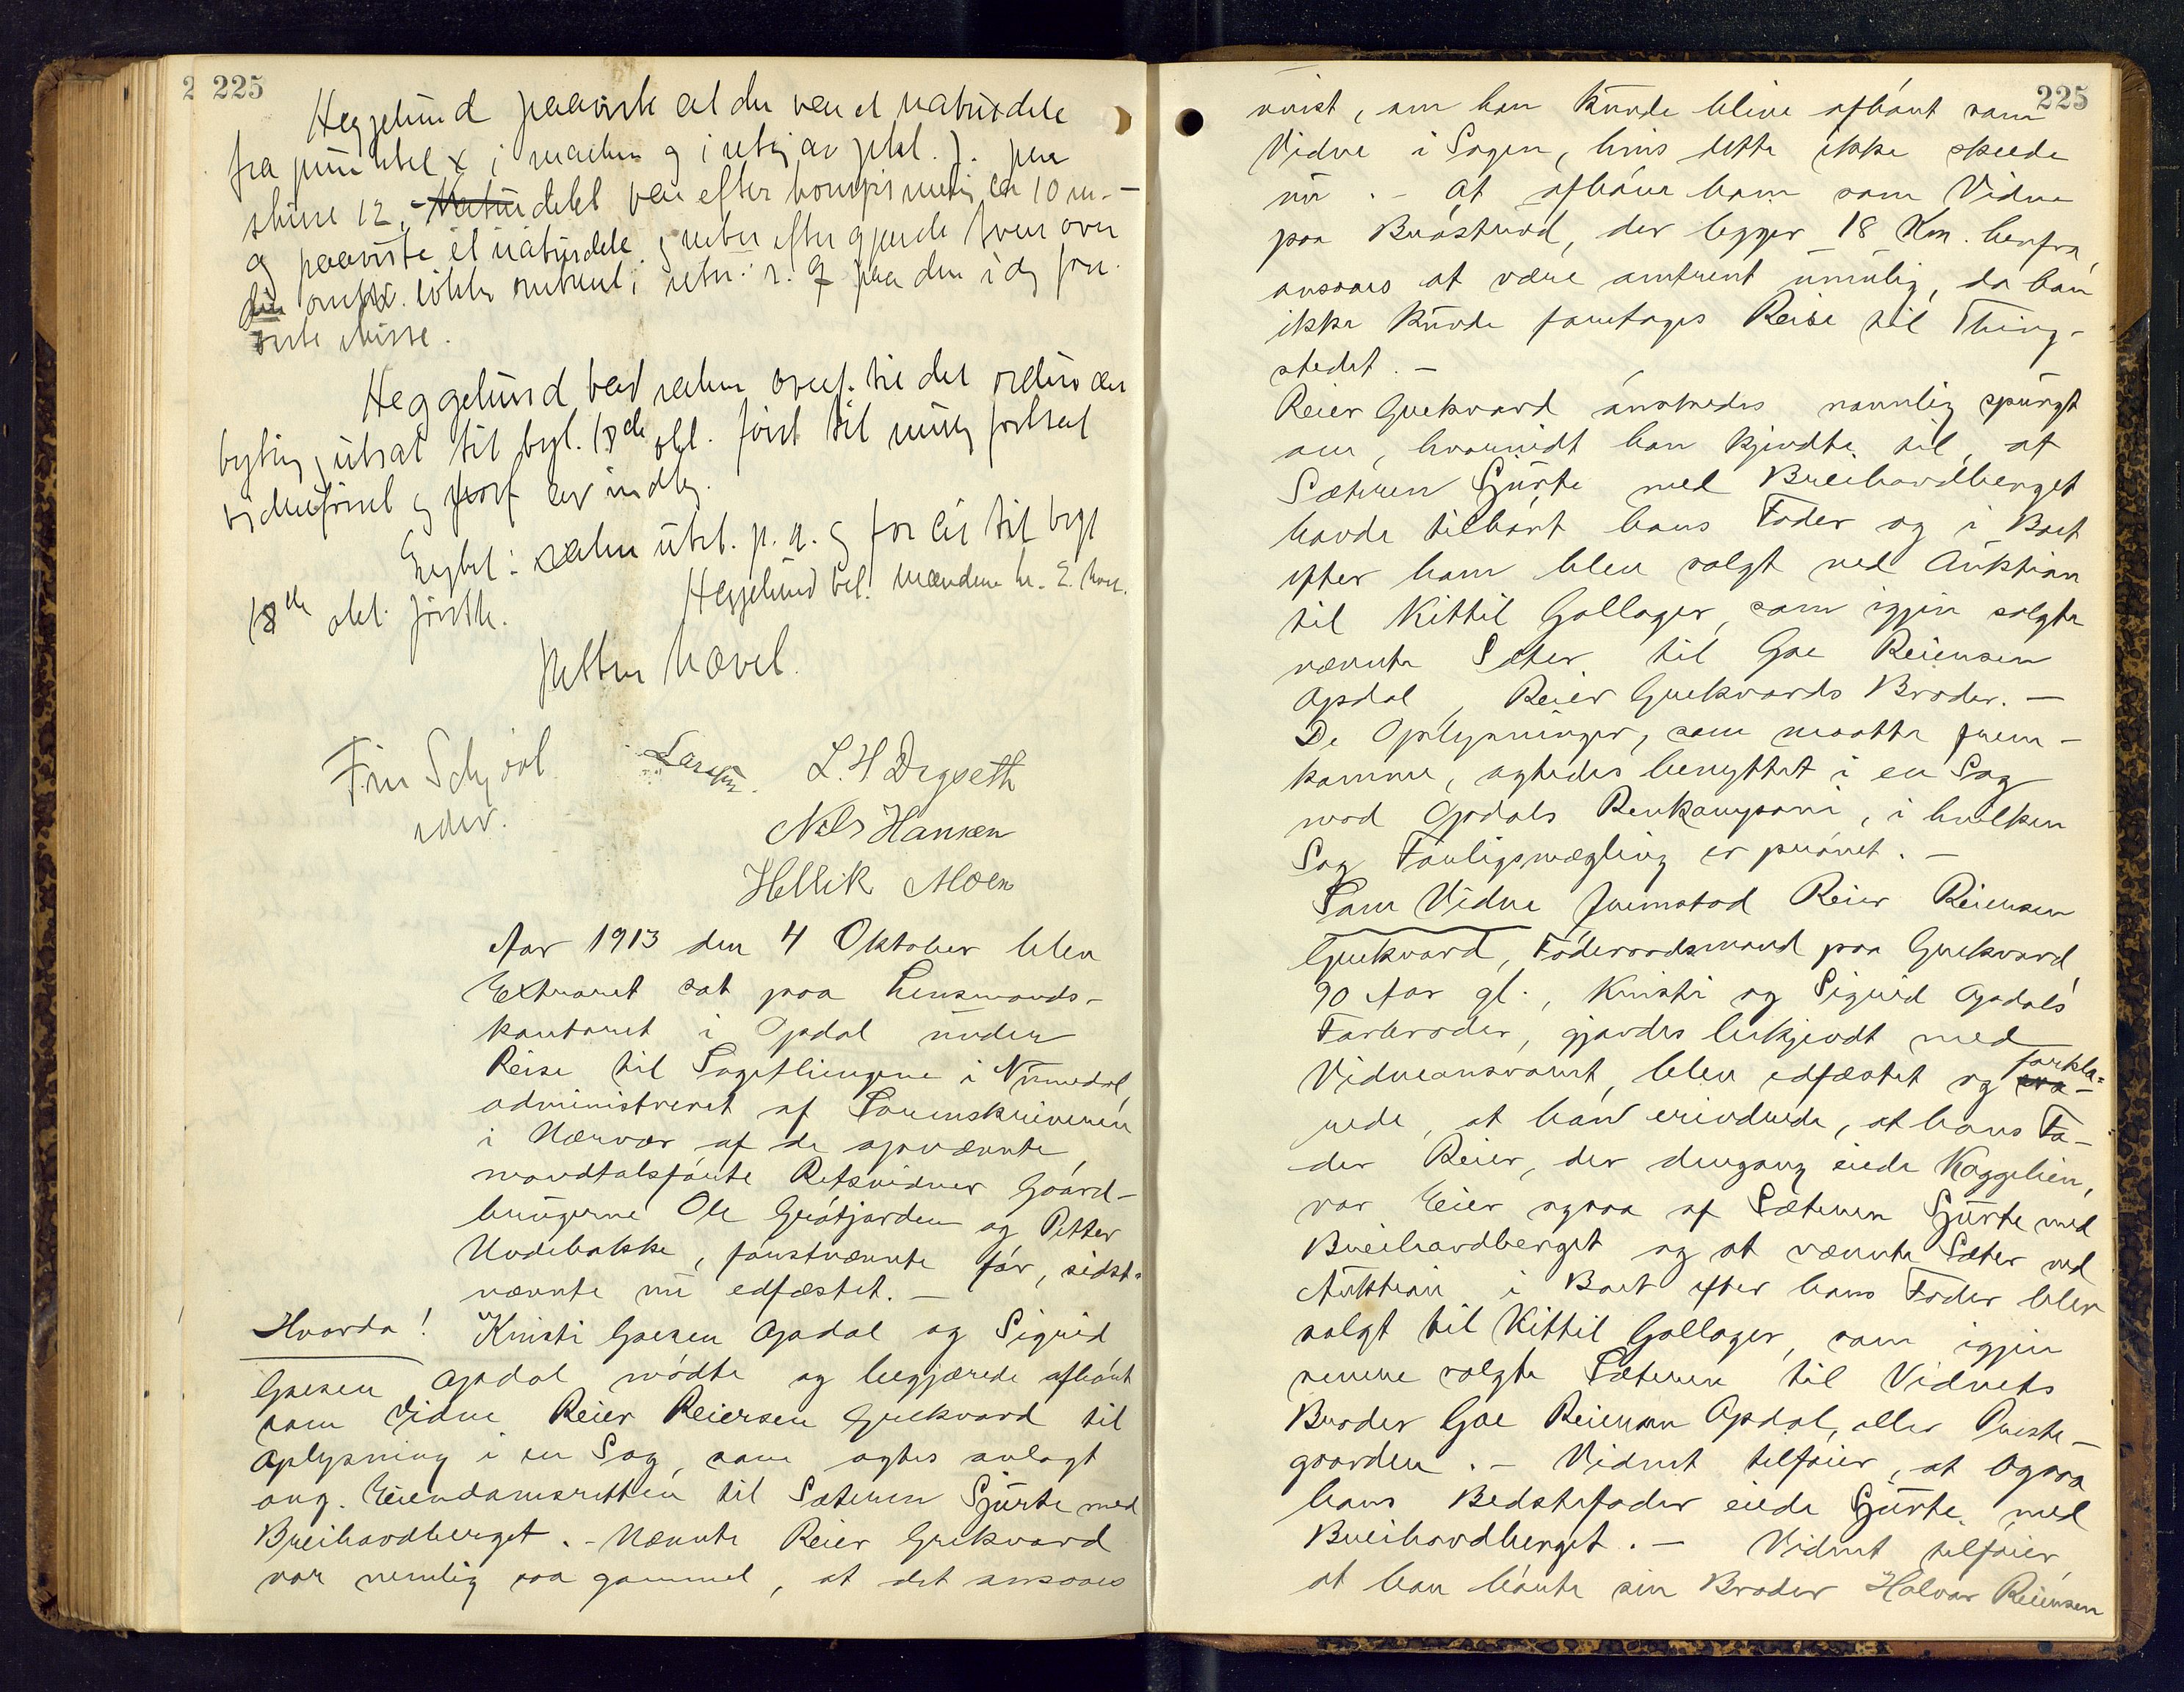 2 225
Heggelund paaviste at der var et naturdele
fra punktet x i marken g i retng av pkt. J. paa
skisse 12, Naturdelet var efter kompisretng ca 10 m. -
og paaviste et naturdele
omtr. omtrent i retn. paa den i dg frem
viste skisse.
Heggelund bad saken overf. til det ordinær
bygting, utsat til bygt. 18de okt. først til mulig fortsat
vidneførsel g av indlæg.
Engbet: saken utst. p. a. g for os til bygt
18de okt. førstk. Heggelund bet. mændene
Retten hævet.
Larssen. L. H Dryseth
Nils Hansen
Hellik Moen
Aar 1913 den 4 Oktober blev
Extraret sat paa Lensmands-
kontoret i Opdal under
Reise til Sagethingene i Numedal,
administreret af Sorenskriveren
i Nærvær af de opnævnte
mandtalsførte Retsvidner Gaard-
brugerne Ole Grøtjorden og Petter
Undebakke, førstnævnte før, sidst-
nævnte nu edfæstet. -
Hvorda! Kristi Goesen Opdal og Sigrid
Goesen Opdal mødte og begjærede afhørt
som Vidne Reier Reiersen Grekvard til
Oplysning i en Sag, som agtes anlagt
ang. Eiendomsretten til Sæteren Sjurte med
Breihovdberget. - Nævnte Reier Grekvard
var nemlig saa gammel, at det ansaaes
225
uvist, om han kunde blive afhørt som
Vidne i Sagen, hvis dette ikke skeede
nu. - At afhøre ham som Vidne
paa Bråstrud, der ligger 18 Km. herfra,
ansaaes at være omtrent umulig, da han
ikke kunde foretages Reise til Thing-
stedet. -
Reier Grekvard ønskedes navnlig spurgt
om, hvorvidt han kjendte til, at
Sæteren Sjurte med Breihovdberget
havde tilhørt hans Fader og i Boet
efter ham blev solgt ved Auktion
til Kittil Gollager, som igjen solgte
nævnte Sæter til Goe Reiersen
Opdal, Reier Grekvards Broder. -
De Oplysninger, som maatte frem-
komme, agtedes benyttet i en Sag
mod Opdals Renkompani, i hvilken
Sag Forligsmægling er prøvet. -
Som Vidne fremstod Reier Reiersen
Grekvard, Føderaadsmand paa Grekvard
90 Aar gl., Kristi og Sigrid Opdals
Farbroder, gjordes bekjendt med
Vidneansvaret, blev edfæstet og forkla-
rede, at han erindrede, at hans Fa-
der Reier, der dengang eiede Kaggelien,
var Eier ogsaa af Sæteren Sjurte med
Breihovdberget og at nævnte Sæter ved
Auktion i Boet efter hans Fader blev
solgt til Kittil Gollager, som igjen
senere solgte Sæteren til Vidnets
Broder Goe Reiersen Opdal, eller Preste-
gaarden. - Vidnet tilføier, at ogsaa
hans Bedstefader eiede Sjurte med
Breihovdberget. - Vidnet tilføier
at han hørte sin Broder Halvor Reiersen